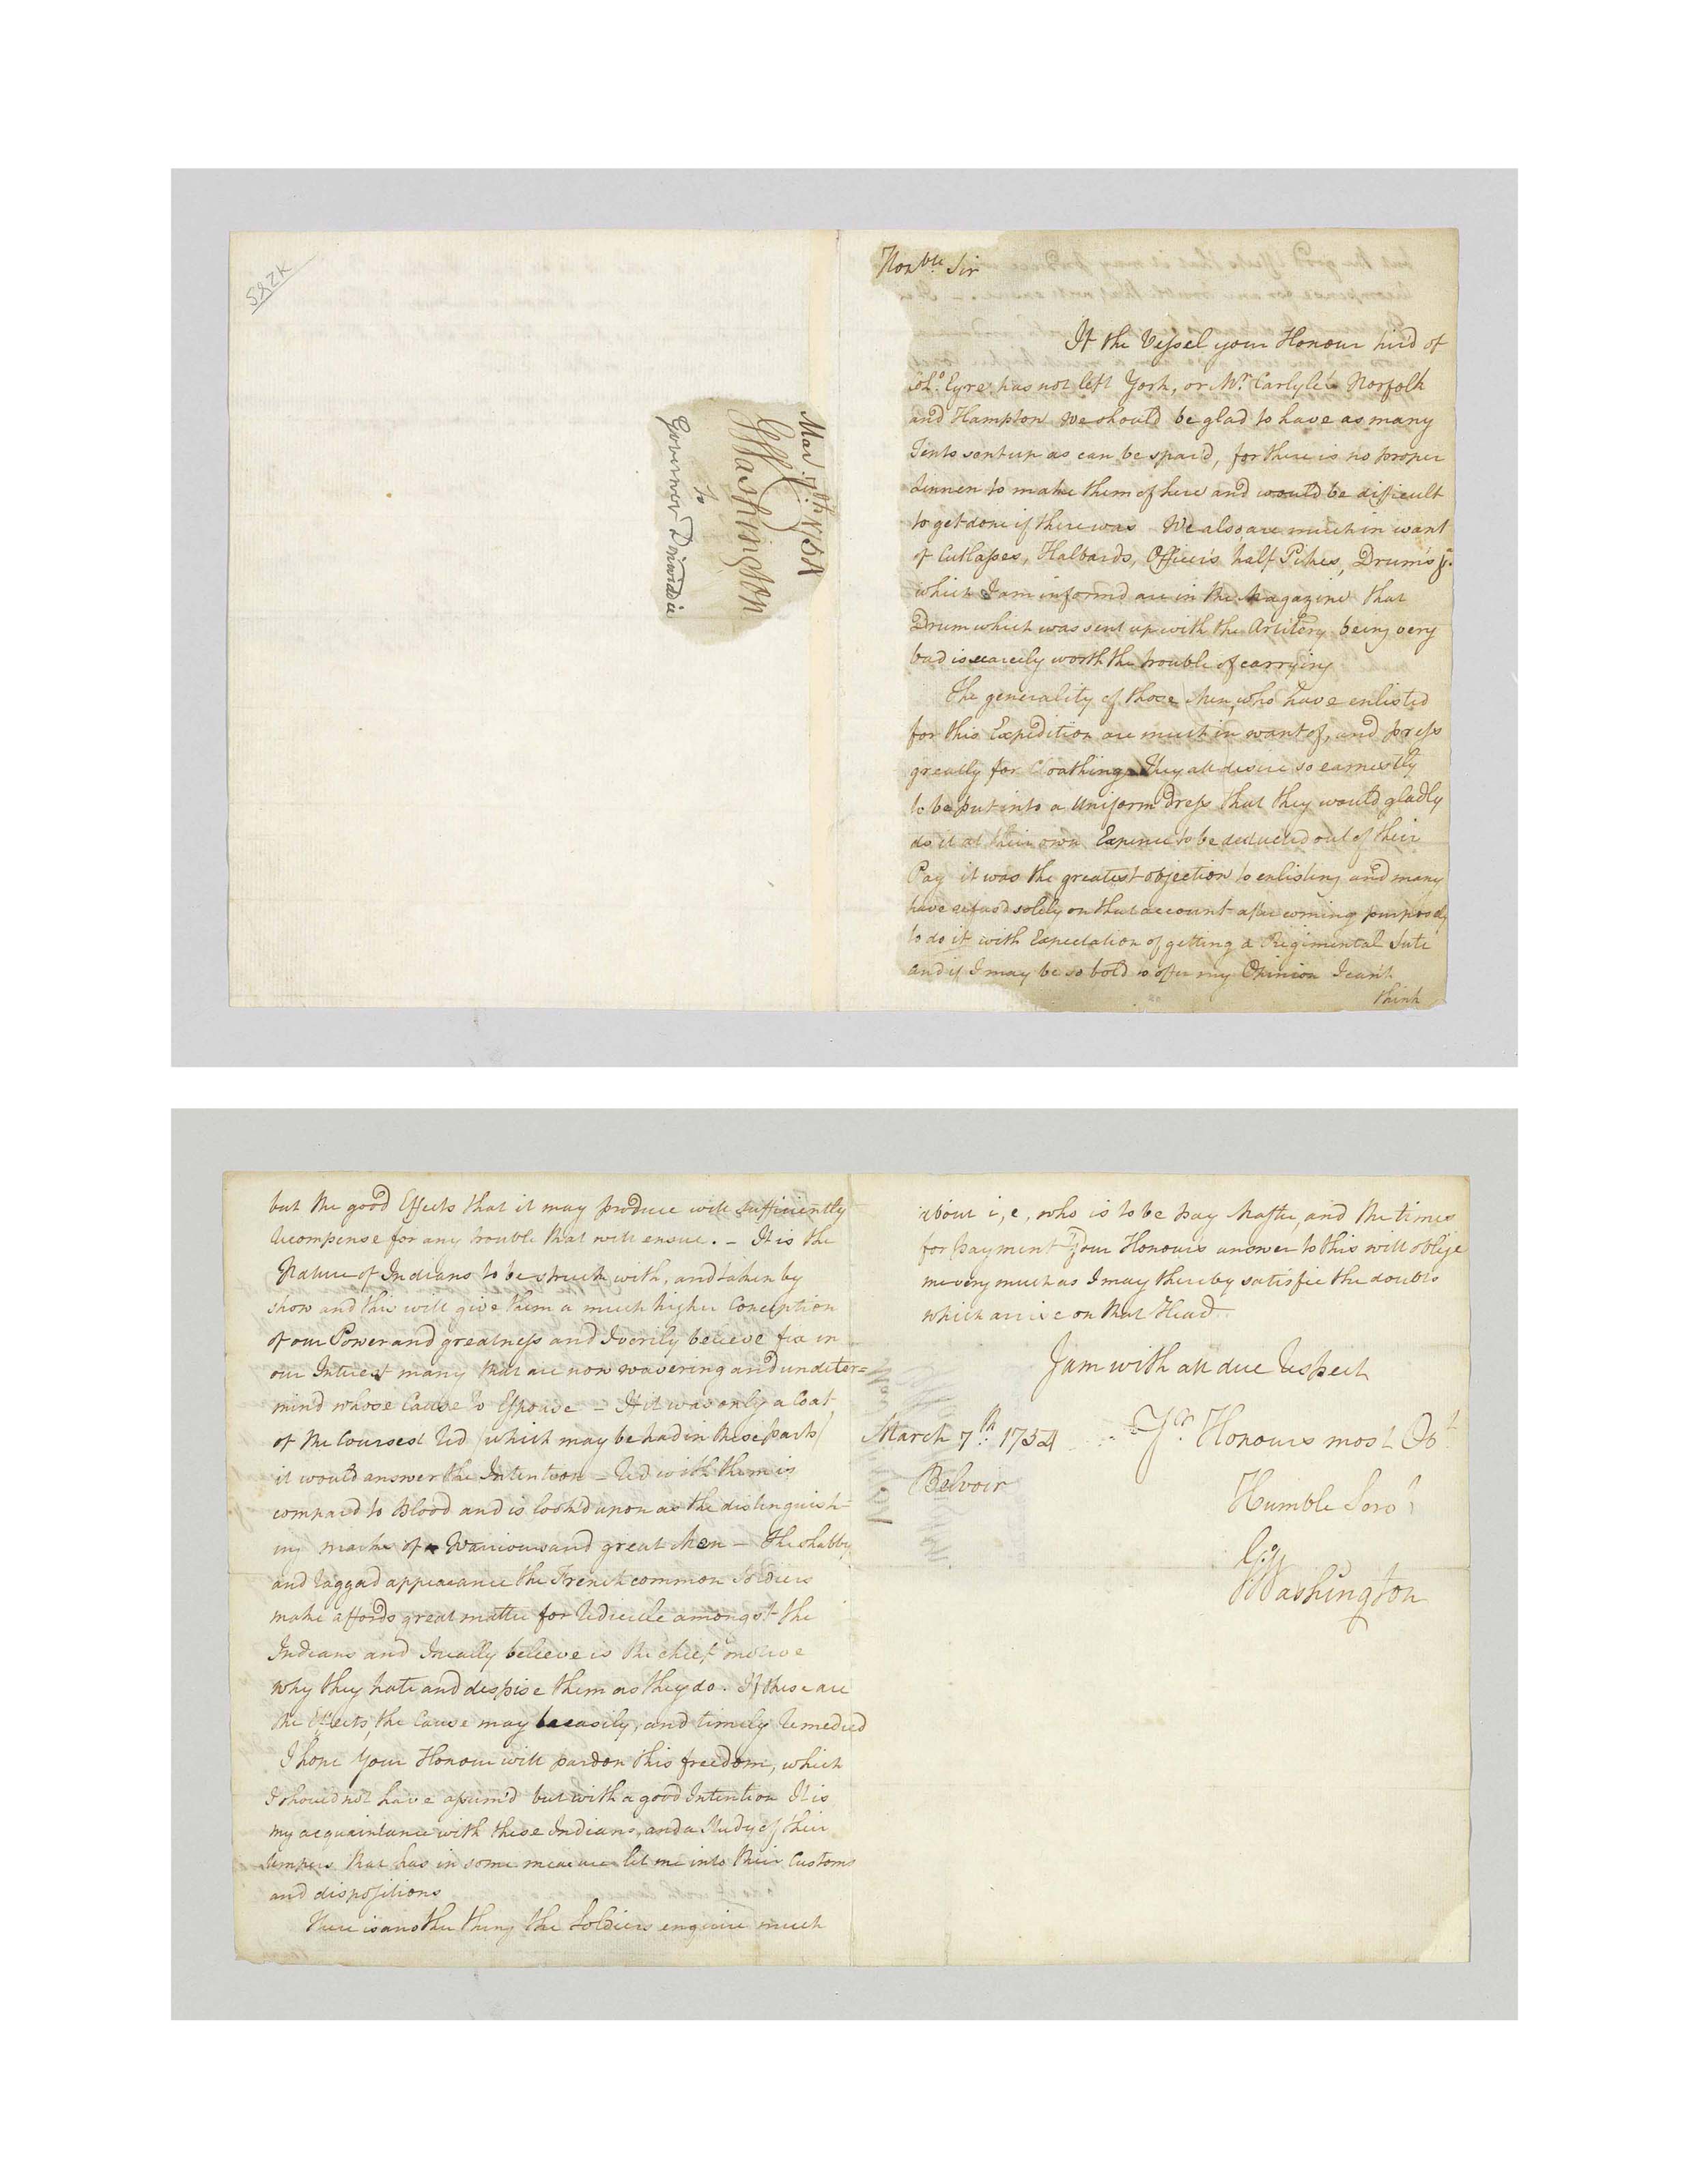 5827K
Mar. 7th. 1754
GWashington
to
Governor Dinwiddie
Honble. Sir
If the Vessel your Honour hir'd of
Colo. Eyre has not left York, or Mr. Carlyle's Norfolk
and Hampton we should be glad to have as many
Tents sent up as can be spar'd, for there is no proper
Linnen to make them of here and would be difficult
to get done if there was We also are much in want
of Cutlasses, Halbards, Officer's half Pikes, Drum's &c.
which I am inform'd are in the Magazine that
Drum which was sent up with the Artilery being very
bad is scarcely worth the trouble of carrying
The generality of those Men, who have enlisted
for this Expedition are much in want of, and press
greatly for Cloathing. They all desire so earnestly
to be put into a Uniform Dress that they would gladly
do it at their own Expence to be deducted out of their
Pay it was the greatest objection to enlisting and many
have refus'd solely on that account after coming purposely
to do it with Expectation of getting a Regimental Sute
and if I may be so bold to offer my Opinion I can't
think
but the good Effects that it may produce will sufficiently
recompense for any trouble that will ensue. – It is the
Nature of Indians to be struck with, and taken by
show and this will give them a much higher Conception
of our Power and greatness and I verily believe fix in
our Interest many that are now wavering and undeter=
mind whose Cause to Espouse – If it was only a Coat
of the Coursest Red (which may be had in these parts)
it would answer the Intention – Red with them is
compard to Blood and is look'd upon as the distinguish-
ing marks of Warriours and great Men – The shabby
and ragged appearance the French common Soldiers
make affords great matter for ridicule amongst the
Indians and I really believe is the chief motive
why they hate and despise them as they do. If these are
the Effects, the Cause may be easily, and timely remedied
I hope Your Honour will pardon this freedom, which
I should not have assum'd but with a good Intention It is
my acquaintance with these Indians, and a Study of their
tempers that has in some measure let me into their Customs
and dispositions
There is another thing the Soldiers enquire much
about i, e, who is to be pay Master, and the times
for payment, Your Honours answer to this will oblige
me very much as I may thereby satisfie the doubts
which arrise on that Head
I am with all due respect
March 7th. 1754 Yr. Honours most Obt.
Belvoir
Humble Servt
Go
Washington